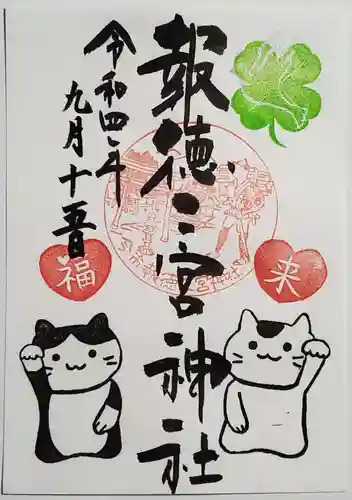 報徳三宮神社
令和四年
九月十五日
福
来